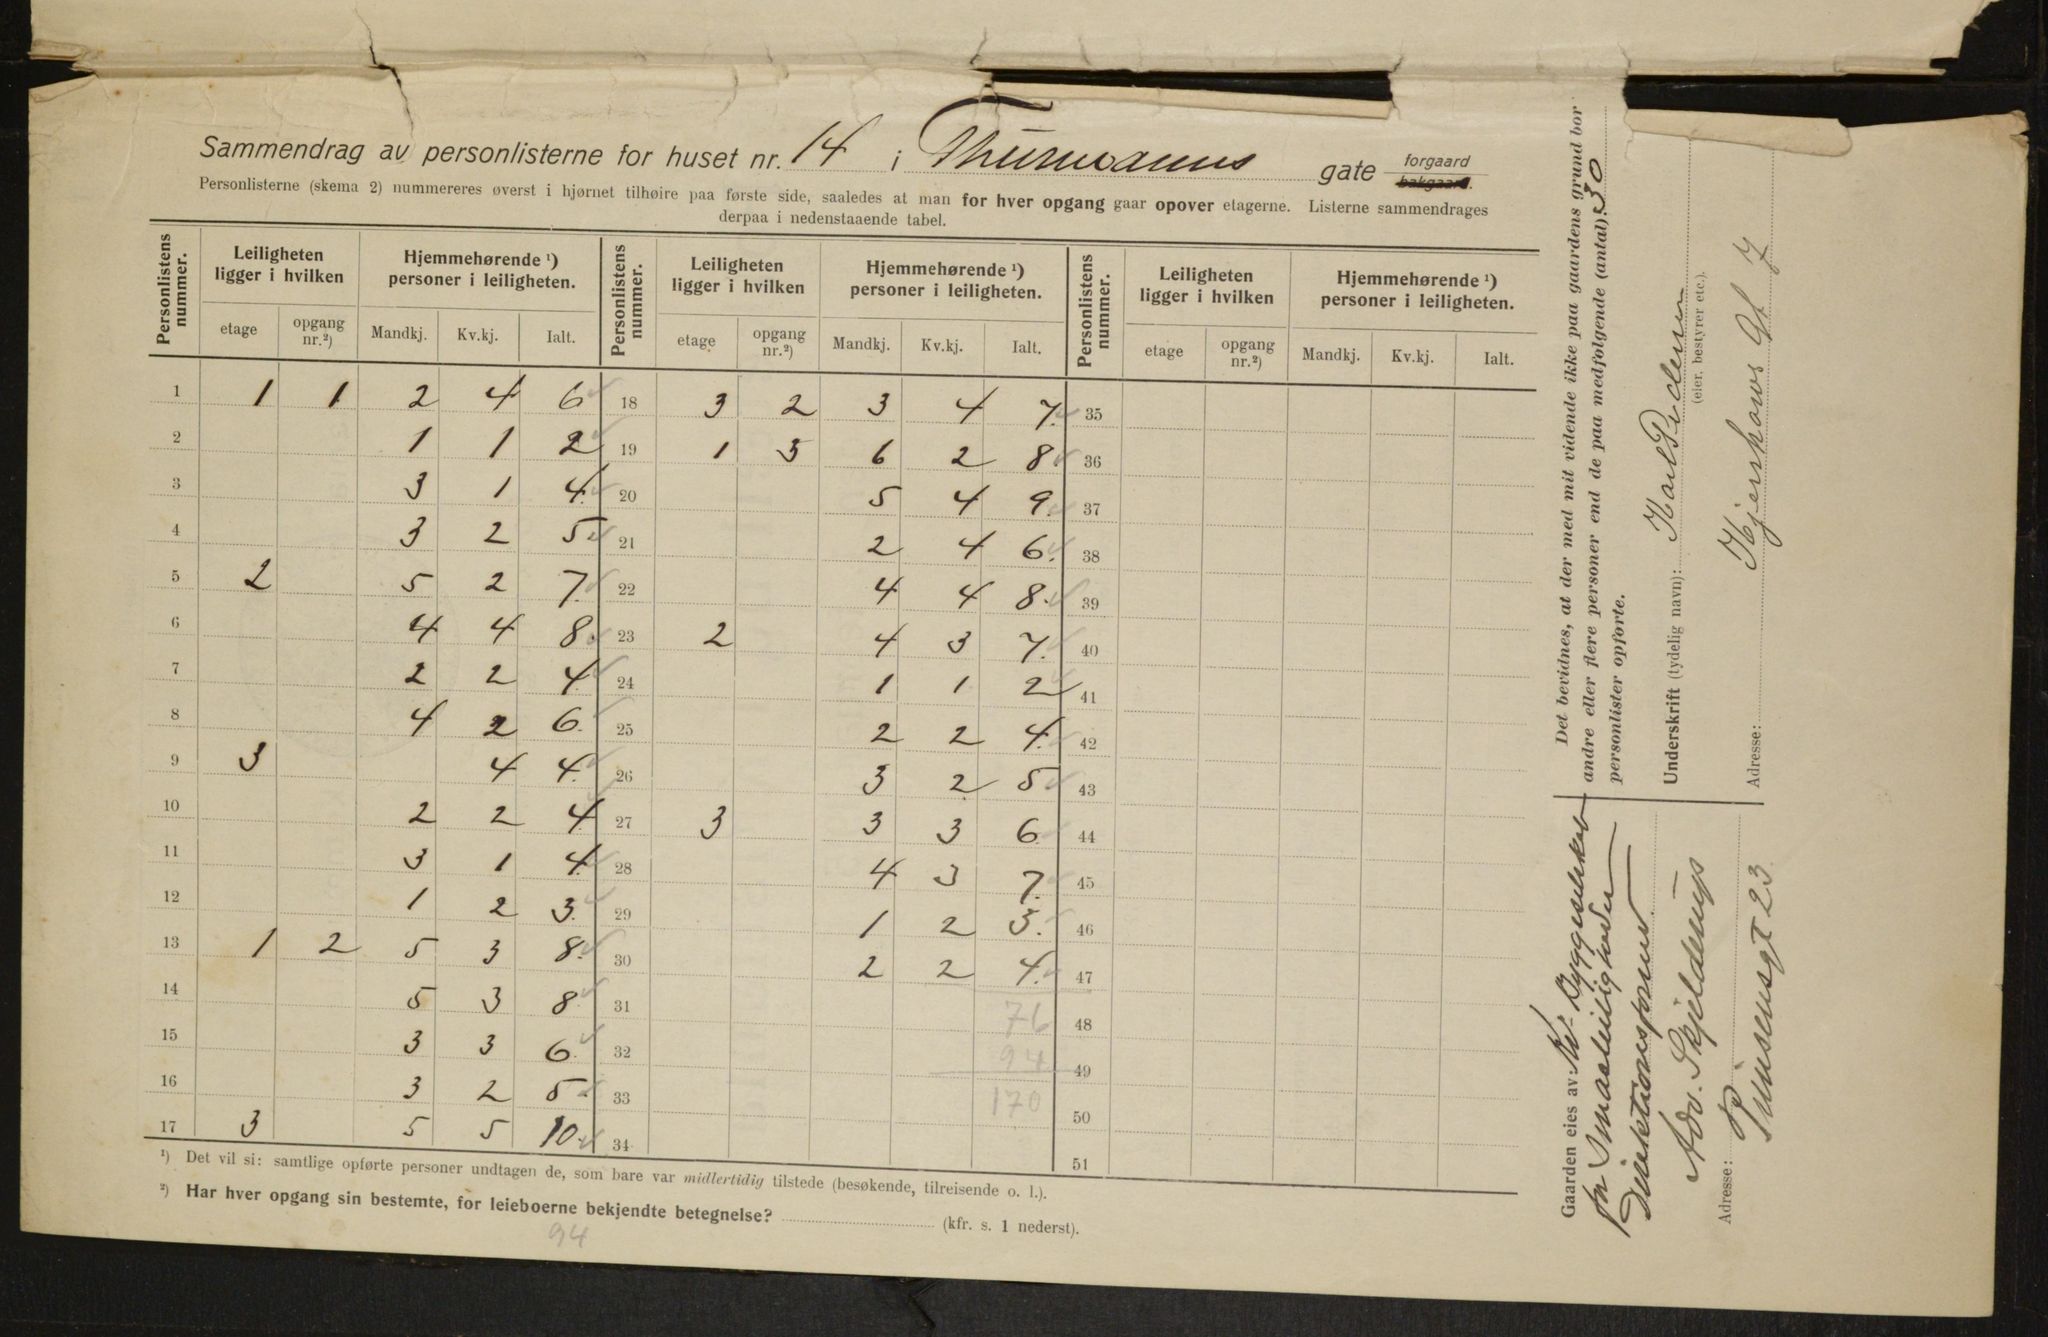 Sammendrag av personlisterne for huset nr. 14 i Thurmanns gate forgaard bakgaard.
Personlisterne (skema 2) nummereres øverst i hjørnet tilhøire paa første side, saaledes at man for hver opgang gaar opover etagerne. Listerne sammendrages
derpaa i nedenstaaende tabel.
Personlistens nummer. Leiligheten ligger i hvilken Hjemmehørende ¹) personer i leiligheten. Personlistens nummer. Leiligheten ligger i hvilken Hjemmehørende ¹) personer i leiligheten. Personlistens nummer. Leiligheten ligger i hvilken Hjemmehørende ¹) personer i leiligheten.
etage opgang nr.²) Mandkj. Kv.kj. Ialt. etage opgang nr.²) Mandkj. Kv.kj. Ialt. etage opgang nr.²) Mandkj. Kv.kj. Ialt.
1 1 1 2 4 6 18 3 2 3 4 7. 35
2 1 1 2 19 1 3 6 2 8 36
3 3 1 4. 20 5 4 9. 37
4 3 2 5 21 2 4 6. 38
5 2 5 2 7. 22 4 4 8. 39
6 4 4 8. 23 2 4 3 7. 40
7 2 2 4. 24 1 1 2 41
8 4 2 6. 25 2 2 4. 42
9 3 4 4. 26 3 2 5 43
10 2 2 4 27 3 3 3 6. 44
11 3 1 4. 28 4 3 7. 45
12 1 2 3. 29 1 2 3. 46
13 1 2 5 3 8. 30 2 2 4. 47
14 5 3 8. 31 76 48
15 3 3 6. 32 94 49
16 3 2 5. 33 170 50
17 3 5 5 10. 34 51
¹) Det vil si: samtlige opførte personer undtagen de, som bare var midlertidig tilstede (besøkende, tilreisende o. l.).
²) Har hver opgang sin bestemte, for leieboerne bekjendte betegnelse? (kfr. s. 1 nederst).
94
Det bevidnes, at der med mit vidende ikke paa gaardens grund bor
andre eller flere personer end de paa medfølgende (antal) 30
personlister opførte.
Underskrift (tydelig navn): Karl Pedersen
(eier, bestyrer etc.).
Adresse: Hjerskows Gt 7
Gaarden eies av Kr. Byggeselskab
for Smaaleiligheder
Direktionsformd.
Adv. Skjelderup
Adresse: Prinsensgt 23.